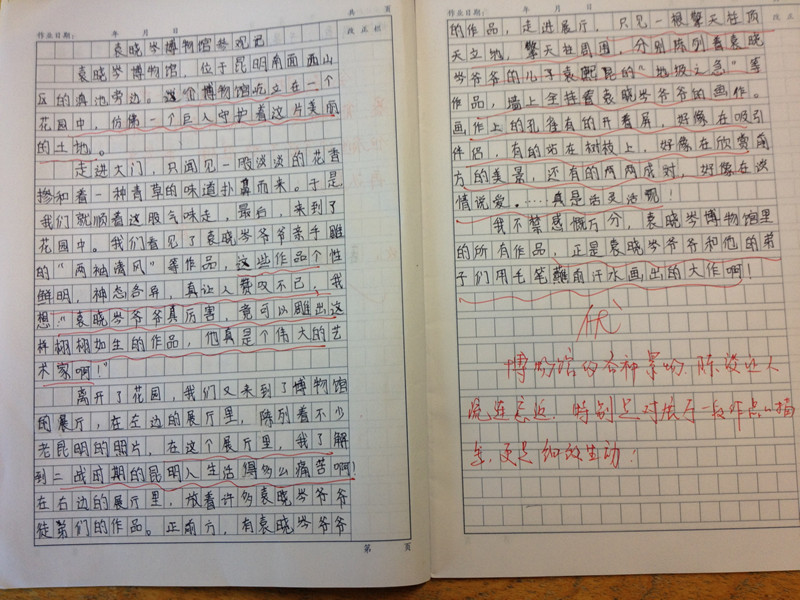 作业日期： 年 月 日 共 页
改正栏
袁晓岑博物馆参观记
袁晓岑博物馆，位于昆明南面西山
区的滇池旁边。这个博物馆屹立在一个
花园中，仿佛一个巨人守护着这片美丽
的土地。
走进大门，只闻见一股淡淡的花香
掺和着一种青草的味道扑鼻而来。于是
我们就顺着这股气味走，最后，来到了
花园中。我们看见了袁晓岑爷爷亲手雕
的“两袖清风”等作品，这些作品个性
鲜明，神态各异，真让人赞叹不已，我
想：“袁晓岑爷爷真厉害，竟可以雕出这
样栩栩如生的作品，他真是个伟大的艺
术家啊！”
离开了花园，我们又来到了博物馆
的展厅，在左边的展厅里，陈列着不少
老昆明的照片，在这个展厅里，我了解
到二战时期的昆明人生活得多么痛苦啊！
在右边的展厅里，放着许多袁晓岑爷爷
徒弟们的作品。正前方，有袁晓岑爷爷
第 页
作业日期： 年 月 日 共 页
改正栏
的作品，走进展厅，只见一根擎天柱顶
天立地，擎天柱周围，分别陈列着袁晓
岑爷爷的儿子袁熙昆的“垃圾之急”等
作品，墙上全挂着袁晓岑爷爷的画作。
画作上的孔雀有的开着屏，好像在吸引
伴侣，有的站在树枝上，好像在欣赏前
方的美景，还有的两两成对，好像在谈
情说爱。……真是活灵活现！
我不禁感慨万分，袁晓岑博物馆里
的所有作品，正是袁晓岑爷爷和他的弟
子们用毛笔蘸着汗水画出的大作啊！
优
博物馆的各种景物、陈设让人
流连忘返，特别是对展厅一段作品的描
写，更是细致生动！